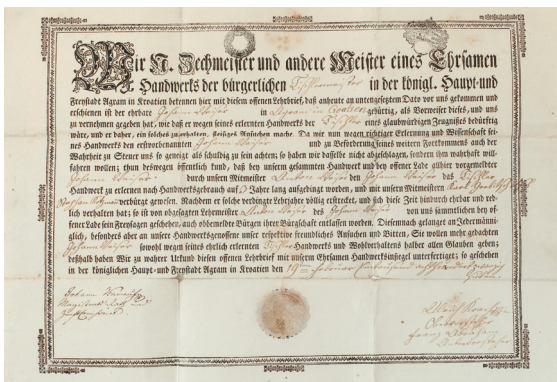 Wir N. Zechmeister und andere Meister eines Ehrsamen
Handwerks der bürgerlichen Tischlermeister in der königl. Haupt-und
Freystadt Agram in Kroatien bekennen hier mit diesem offenen Lehrbrief, daß anheute zu untengesetztem Dato vor uns gekommen und
erschienen ist der ehrbar Johann in Agram in Croatien gebürtig, als Vorweiser dieses, und uns
zu vernehmen gegeben hat, wie daß er wegen seines erlernten Handwerks der Tischler eines glaubwürdigen Zeugnißes bedürftig
wäre, und er daher, ein solches zu erhalten, fleißiges Ansuchen mache. Da wir nun wegen richtiger Erlernung und Wissenheit sei-
nes Handwerks den erstbenannten Johann und zu Beförderung seines weitern Fortkommens auch der
Wahrheit zu Steuer uns so geneigt als schuldig zu sein achten; so haben wir dasselbe nicht abgeschlagen, sondern ihm wahrhaft will-
fahren wollen; thun deswegen öffentlich kund, daß bey unserm gesammten Handwerk und bey offener Lade allhier vorgemelter
Johann durch unsern Mitmeister Anton den Johann das Tischler
Handwerk zu erlernen nach Handwerksgebrauch auf 3 Jahre lang aufgedingt worden, und mit unsern Mitmeistern Karl
Stephan verbürgt gewesen. Nachdem er solche verdingte Lehrjahre völlig erstreckt, und sich diese Zeit hindurch ehrbar und red-
lich verhalten hat; so ist von obgesagten Lehrmeister Anton des Johann von uns sammentlichen bey of-
fener Lade sein Freysagen geschehen, auch obgemeldte Bürgen ihrer Bürgschaft entlassen worden. Diesemnach gelanget an Jedermännig-
lich, besonders aber an unsere Handwerksgenossene unser respektive freundliches Ansuchen und Bitten, Sie wollen mehr gedachten
Johann sowohl wegen seines ehrlich erlernten Tischler Handwerks und Wohlverhaltens halber allen Glauben geben;
deßhalb haben Wir zu wahrer Urkund diesen offenen Lehrbrief mit unserm Ehrsamen Handwerksinsiegel unterfertiget; so geschehen
in der königlichen Haupt- und Freystadt Agram in Kroatien den 19 Februar
Johann
Magistrats Rath und